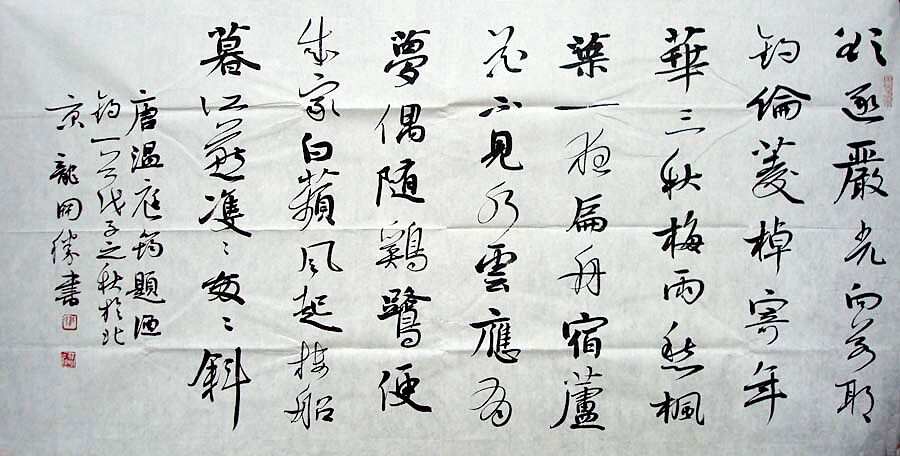 逐嚴光向若耶
钓倫菱棹寄年
華三秋梅雨愁楓
葉一夜扁舟宿蘆
花不見水雲應有
夢偶随鷄鷺便
成家白蘋風起樓船
暮江燕雙々々斜
唐温庭筠題酒
钧一首戊子之秋於北
京龍開勝書